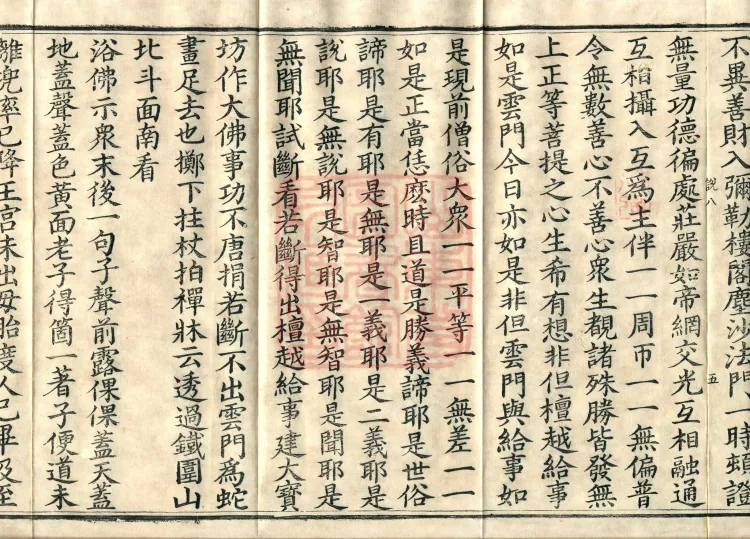 不異善財入彌勒樓閣塵沙法門一時頓證
說八 五
無量功德徧處莊嚴如帝網交光互相融通
互相攝入互爲主伴一一周帀一一無偏普
令無數善心不善心衆生覩諸殊勝皆發無
上正等菩提之心生希有想非但檀越給事
如是雲門今日亦如是非但雲門與給事如
是現前僧俗大衆一一平等一一無差一一
如是正當恁麽時且道是勝義諦耶是世俗
諦耶是有耶是無耶是一義耶是二義耶是
說耶是無說耶是智耶是無智耶是聞耶是
無聞耶試斷看若斷得出檀越給事建大寶
坊作大佛事功不唐捐若斷不出雲門爲蛇
畫足去也擲下拄杖拍禪牀云透過鐵圍山
北斗面南看
浴佛示衆末後一句子聲前露倮倮蓋天蓋
地蓋聲蓋色黃面老子得箇一著子便道未
離兜率已降王宮未出母胎度人已畢及至